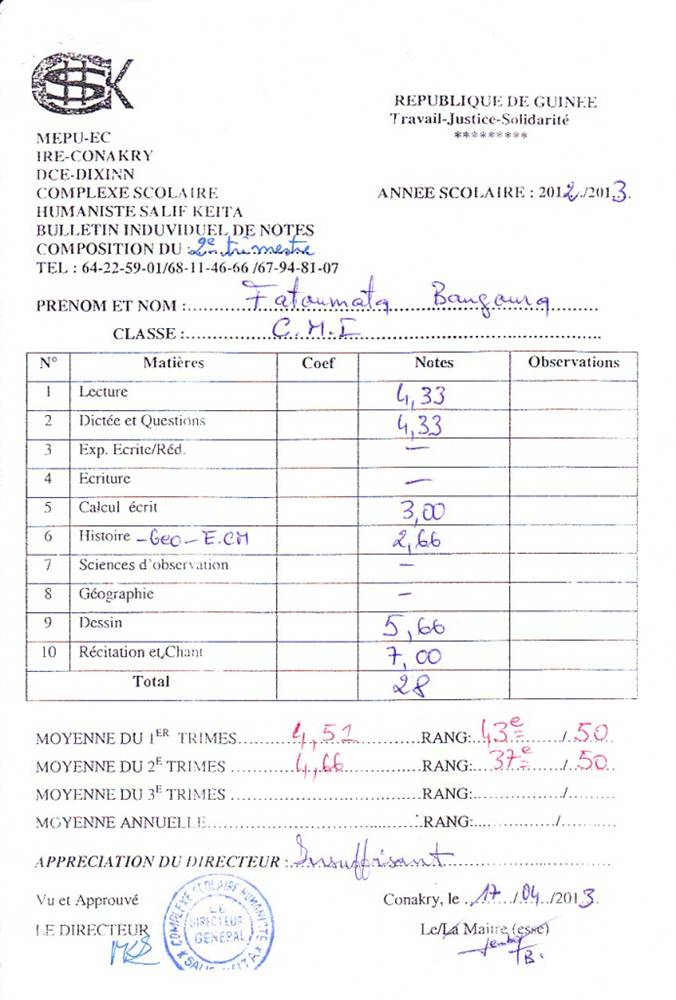 HSK
REPUBLIQUE DE GUINEE
Travail-Justice-Solidarité
*********
MEPU-EC
IRE-CONAKRY
DCE-DIXINN
COMPLEXE SCOLAIRE
HUMANISTE SALIF KEITA
ANNEE SCOLAIRE : 2012./2013.
BULLETIN INDUVIDUEL DE NOTES
COMPOSITION DU : 2e trimestre
TEL : 64-22-59-01/68-11-46-66 /67-94-81-07
PRENOM ET NOM : Fatoumata Bangoura
CLASSE : C.M.I
N° Matières Coef Notes Observations
1 Lecture 4,33
2 Dictée et Questions 4,33
3 Exp. Ecrite/Réd. —
4 Ecriture —
5 Calcul écrit 3,00
6 Histoire - Geo - E.CM 2,66
7 Sciences d'observation —
8 Géographie —
9 Dessin 5,66
10 Récitation et Chant 7,00
Total 28
MOYENNE DU 1ER TRIMES 4,51 RANG: 43e / 50
MOYENNE DU 2E TRIMES 4,66 RANG: 37e / 50
MOYENNE DU 3E TRIMES RANG: /
MOYENNE ANNUELLE RANG: /
APPRECIATION DU DIRECTEUR : Insuffisant
Vu et Approuvé Conakry, le 17 /04 /2013.
LE DIRECTEUR Le/La Maitre (esse)
COMPLEXE SCOLAIRE HUMANISTE
LE
DIRECTEUR
GENERAL
SALIF KEITA